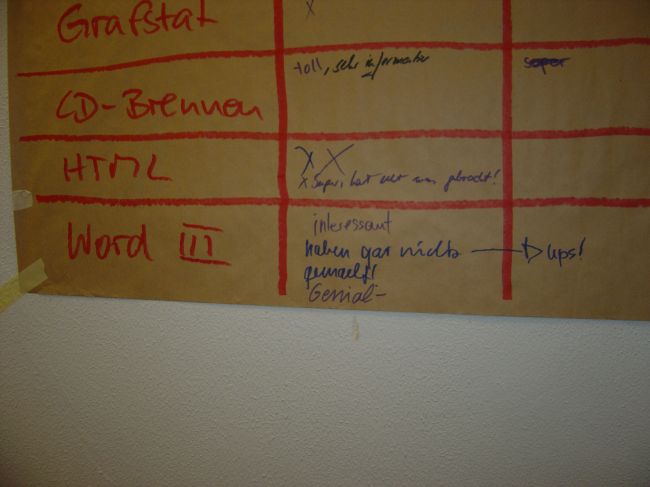 Grafstat x
CD-Brennen toll, sehr informativ super
HTML X X
x super, hat echt was gebracht!
Word III interessant
haben gar nichts → ups!
gemacht!
Genial-